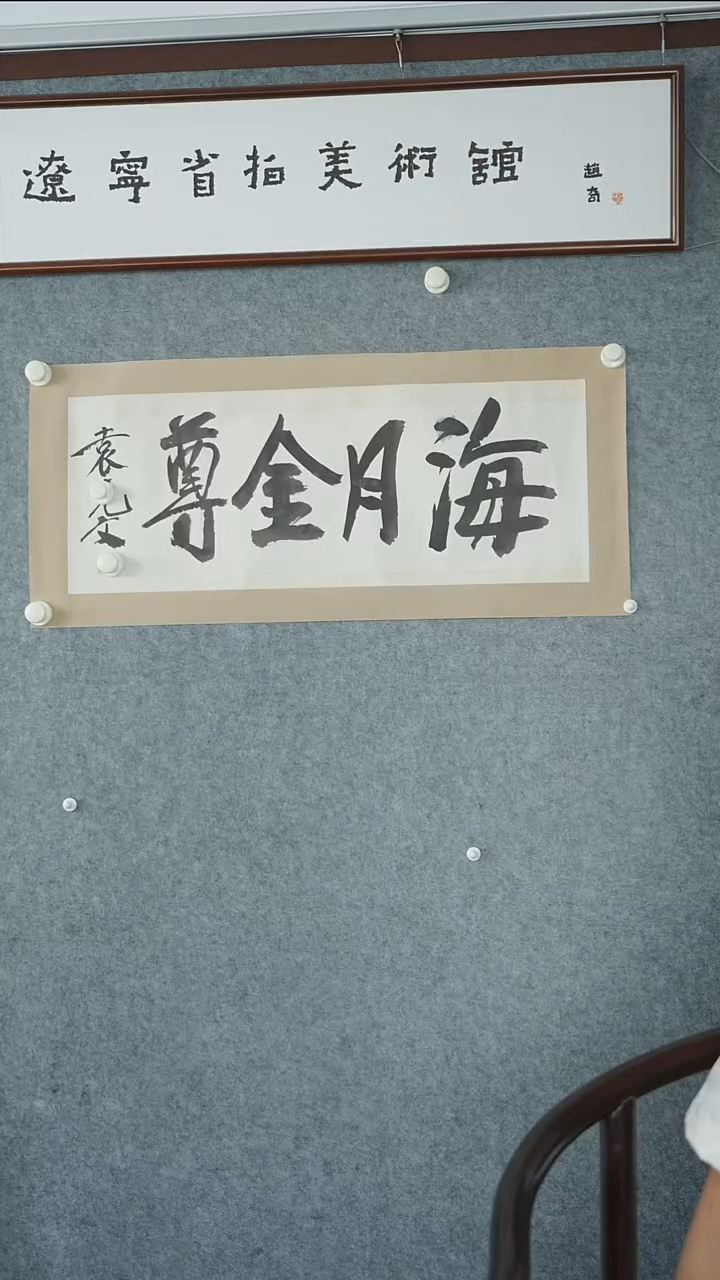 遼寧省拍美術館
趙奇
海月金尊
袁